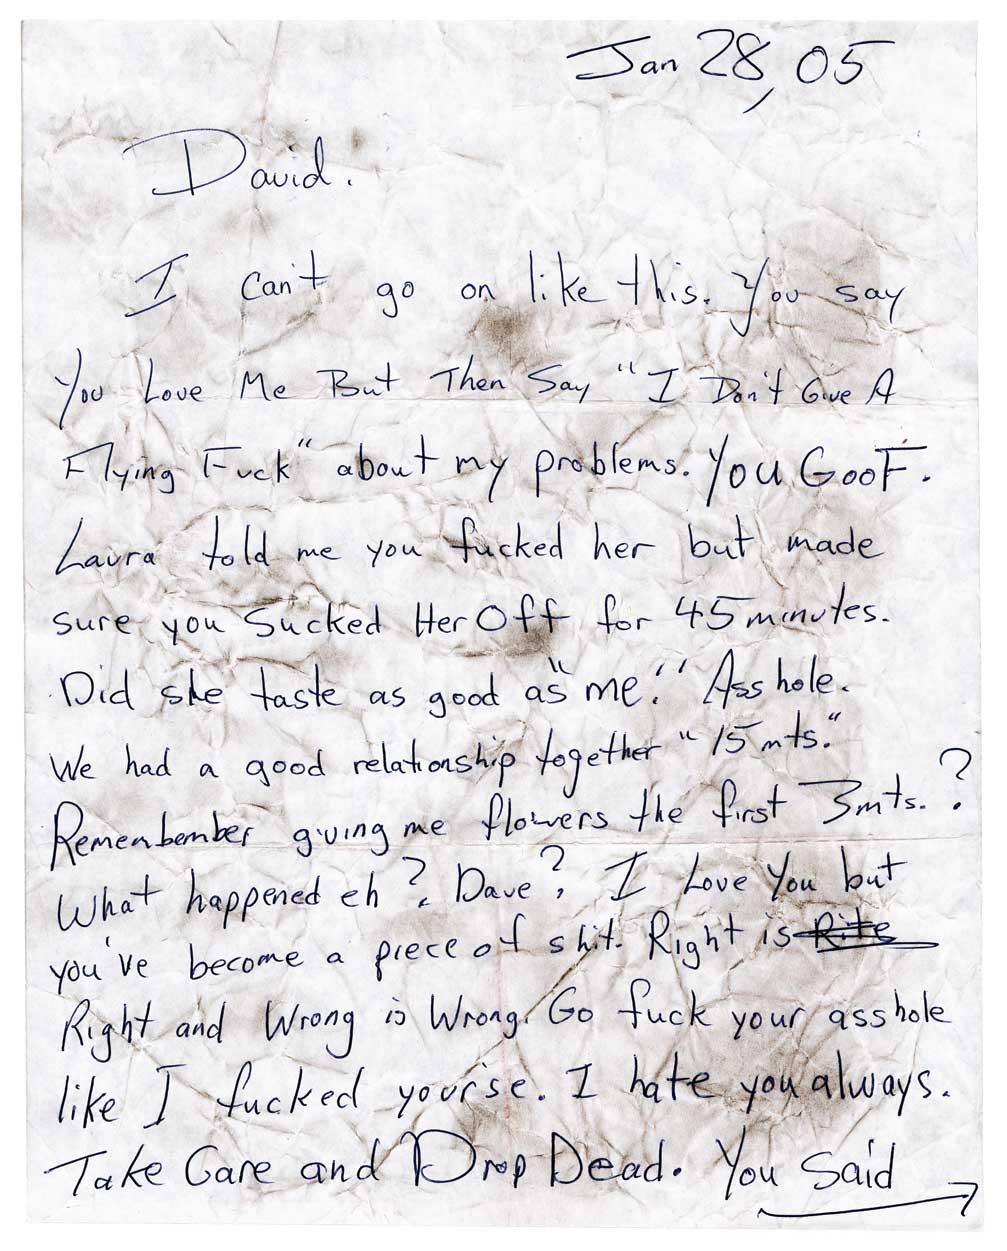 Jan 28, 05
David.
I can't go on like this. You say
You Love Me But Then Say "I Don't Give A
Flying Fuck" about my problems. You GooF.
Laura told me you fucked her but made
sure you Sucked Her Off for 45 minutes.
Did she taste as good as "me." Asshole.
We had a good relationship together "15 mts."
Remembember giving me flowers the first 3mts. ?
What happened eh? Dave? I Love You but
you've become a piece of shit. Right is Rite
Right and Wrong is Wrong. Go fuck your asshole
like I fucked your'se. I hate you always.
Take Care and Drop Dead. You Said